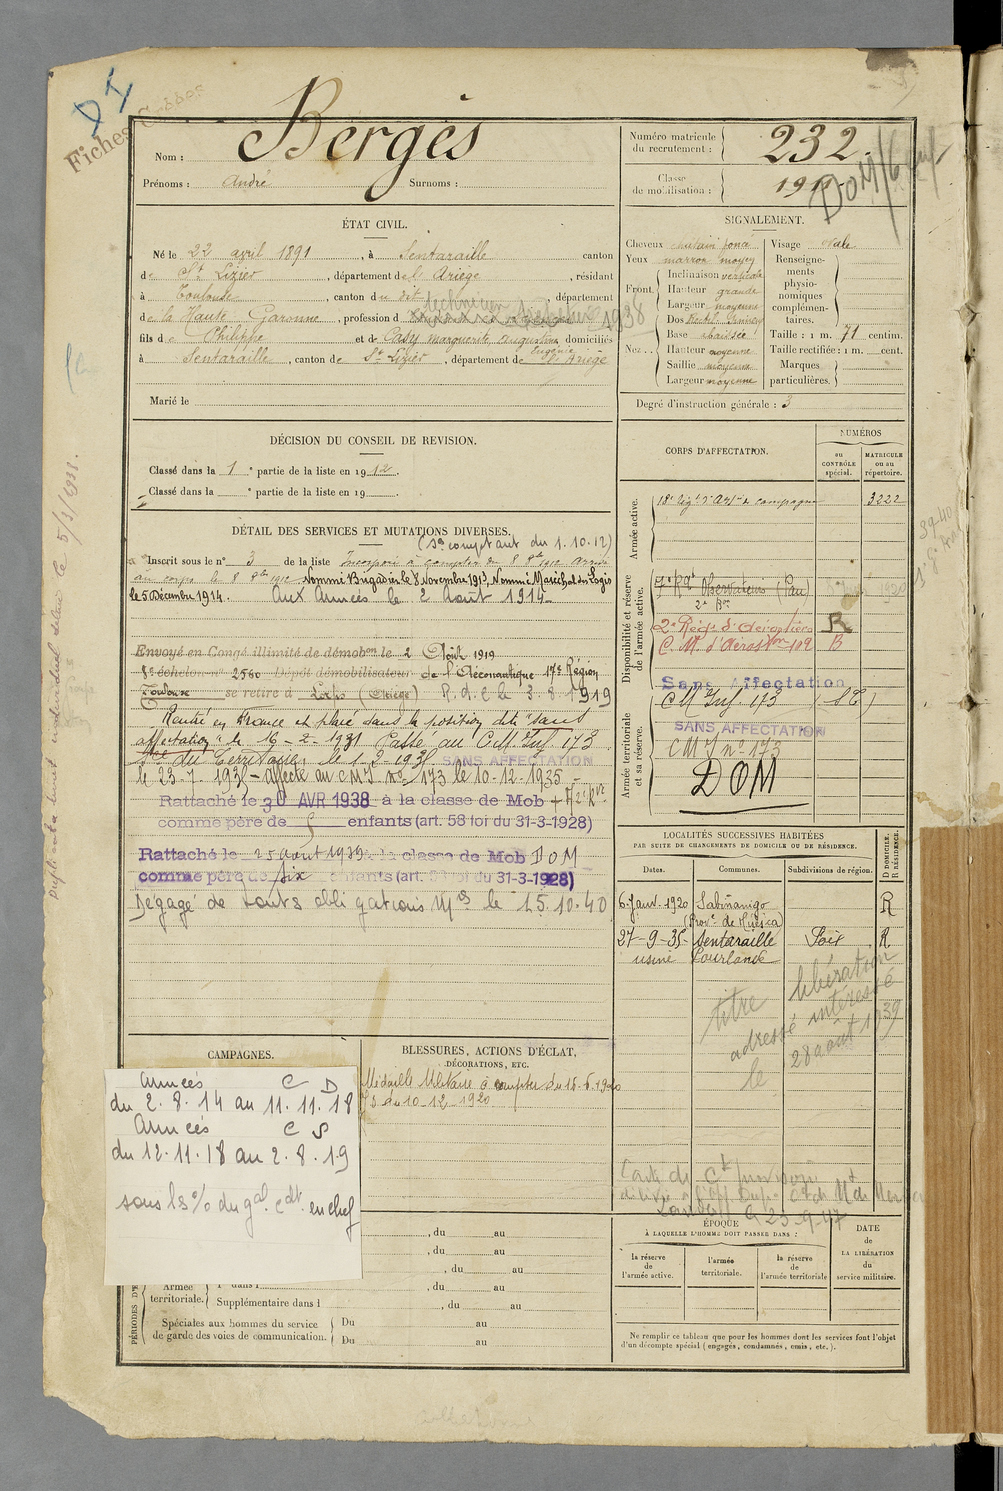 DI
Fiches Croisées
Nom : Bergès
Prénoms : André Surnoms :
Numéro matricule du recrutement : 232.
Classe de mobilisation : 191
DOM/6 enf
ÉTAT CIVIL.
Né le 22 avril 1891, à Sentaraille canton
de St Lizier, département de l'Ariège, résidant
à Toulouse, canton du dit, département
de la Haute Garonne, profession d technicien 1938
fils de Philippe et de Casy marguerite augustine Eugénie domiciliés
à Sentaraille, canton de St Lizier, département de l'Ariège
Marié le
SIGNALEMENT.
Cheveux chatain foncé
Yeux marron moyen
Front. Inclinaison verticale
Hauteur grande
Largeur moyenne
Nez.. Dos
Base abaissée
Hauteur moyenne
Saillie moyenne
Largeur moyenne
Visage ovale
Renseignements physionomiques complémentaires.
Taille : 1 m. 71 centim.
Taille rectifiée : 1 m. cent.
Marques particulières.
Degré d'instruction générale : 3
DÉCISION DU CONSEIL DE REVISION.
Classé dans la 1e partie de la liste en 1912.
Classé dans la e partie de la liste en 19
DÉTAIL DES SERVICES ET MUTATIONS DIVERSES.
(Sce comptant du 1.10.12)
Inscrit sous le n° 3 de la liste Incorporé à compter du 8 8bre 1912 Arrivé
au corps le 8 8bre 1912 Nommé Brigadier le 8 Novembre 1913, Nommé Maréchal des Logis
le 5 Décembre 1914. Aux Armées le 2 Août 1914
Envoyé en Congé illimité de démobon le 2 Août 1919
8e échelon n° 2560 Dépôt démobilisateur de l'Aéronautique 17e Région
Toulouse se retire à (Ariège) R.d.C le 3.8.1919
Rentré en France et placé dans la position dite "sans
affectation" le 16-2-1931 Passé au C.M. Inf. 173
le 1-2-193 SANS AFFECTATION
le 23.7.1935 - Affecté au CMI no 173 le 10-12-1935 -
Rattaché le 30 AVR 1938 à la classe de Mob
comme père de 5 enfants (art. 58 loi du 31-3-1928)
Rattaché le 25 août 1939 à la classe de Mob DOM
comme père de six enfants (art. 58 loi du 31-3-1928)
Dégagé de toutes obligations Mres le 15.10.40
CORPS D'AFFECTATION.
NUMÉROS
au CONTRÔLE spécial.
MATRICULE ou au répertoire.
Armée active.
18e Régt d'Artie de campagne 3222
Disponibilité et réserve de l'armée active.
7e Rgt Observateurs (Pau)
2e Bon
2e Régt d'Aérostiers R
C. M. d'Aérostion 109 B
Sans Affectation
Armée territoriale et sa réserve.
CM Inf. 173 (SE)
SANS AFFECTATION
CMI no 173
DOM
LOCALITÉS SUCCESSIVES HABITÉES
PAR SUITE DE CHANGEMENTS DE DOMICILE OU DE RÉSIDENCE.
Dates. Communes. Subdivisions de région. D DOMICILE. R RÉSIDENCE.
6 Janv. 1920 Sabiñanigo R
(Provce de Huesca)
27-9-35 Sentaraille Foix R
usine Lourlande
titre libération
adressé intéressé
le 28 août 1939
CAMPAGNES.
Armées C D
du 2.8.14 au 11.11.18
Armées C S
du 12.11.18 au 2.8.19
sous les o/ du gal Cdt en chef
BLESSURES, ACTIONS D'ÉCLAT,
DÉCORATIONS, ETC.
Médaille Militaire à compter du 16.6.1920
JO du 10-12-1920
Carte de Ct provisoire
23-9-47
, du au
, du au
, du au
, du au
Armée territoriale.
Supplémentaire dans l , du au
Spéciales aux hommes du service de garde des voies de communication. Du au
Du au
ÉPOQUE
À LAQUELLE L'HOMME DOIT PASSER DANS :
la réserve de l'armée active.
l'armée territoriale.
la réserve de l'armée territoriale
DATE de LA LIBÉRATION du service militaire.
Ne remplir ce tableau que pour les hommes dont les services font l'objet
d'un décompte spécial (engagés, condamnés, omis, etc.).